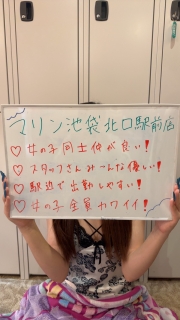 マリン池袋北口駅前店
♡女の子同士仲が良い!
♡スタッフさんみ〜んな優しい!
♡駅近で出勤しやすい!
♡女の子全員カワイイ!